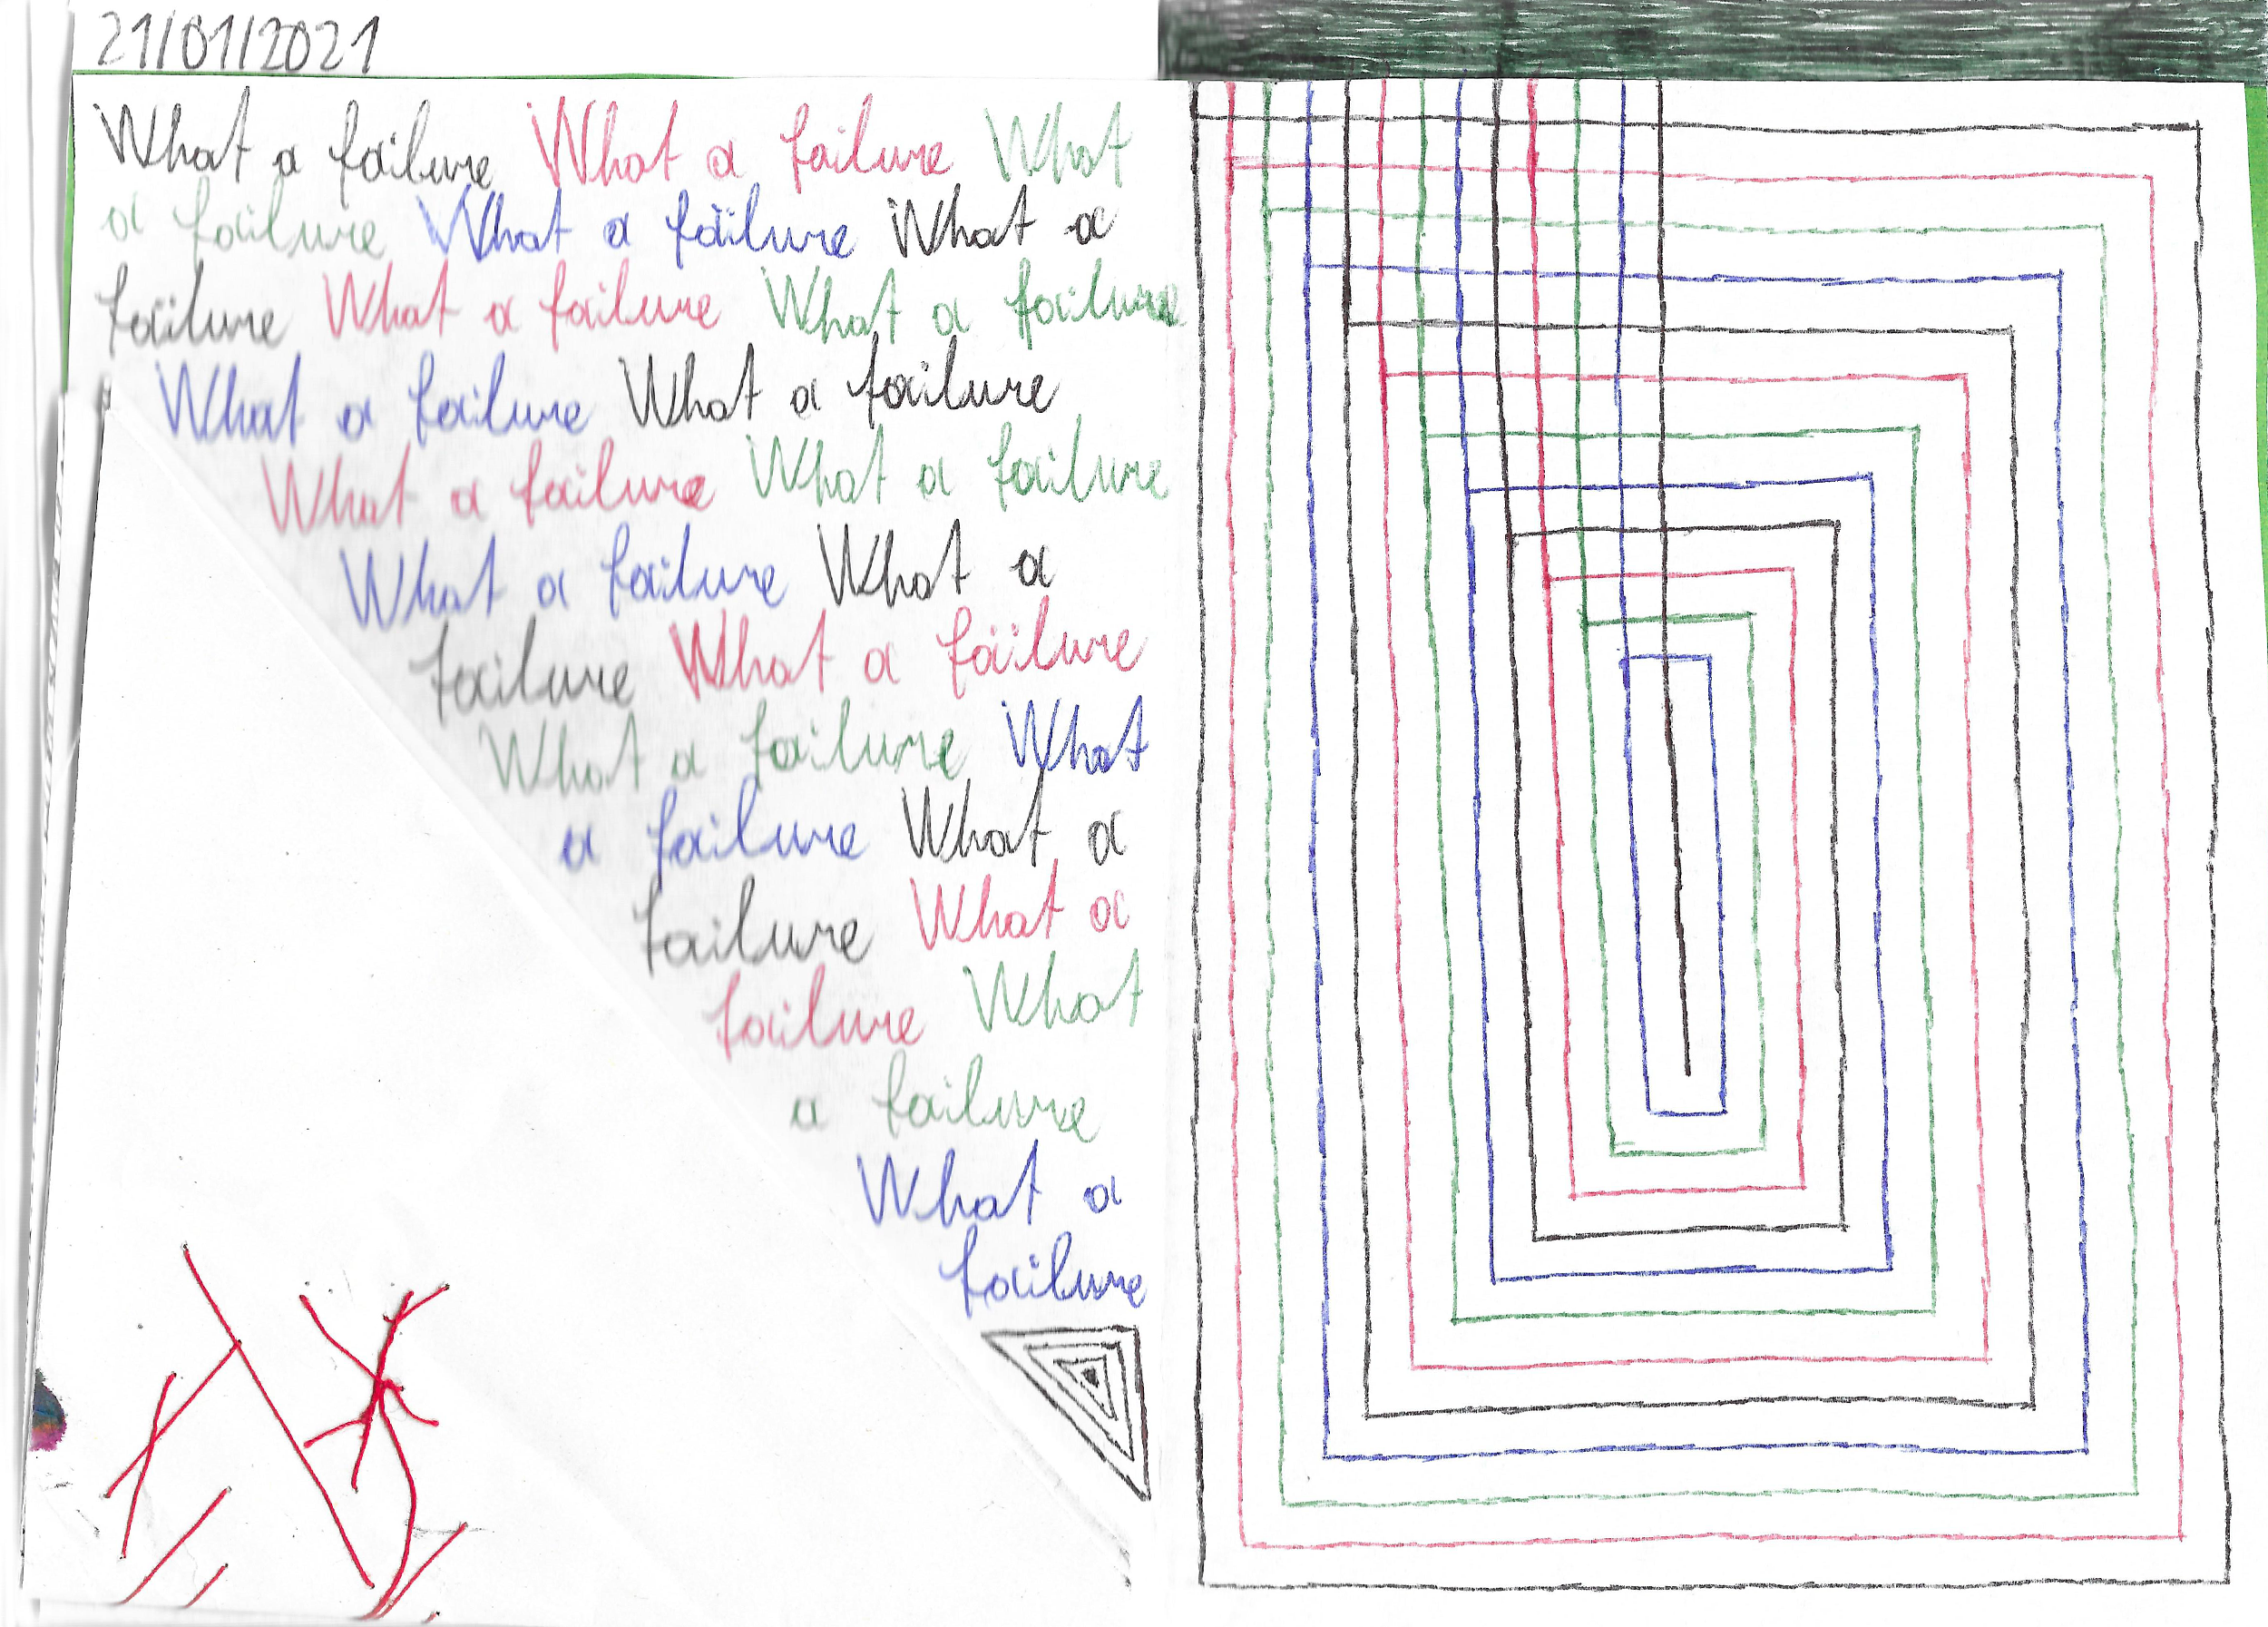 21/01/2021
What a failure What a failure What
a failure What a failure What a
failure What a failure What a failure
What a failure What a failure
What a failure What a failure
What a failure What a
failure What a failure
What a failure What
a failure What a
failure What a
failure What
a failure
What a
failure